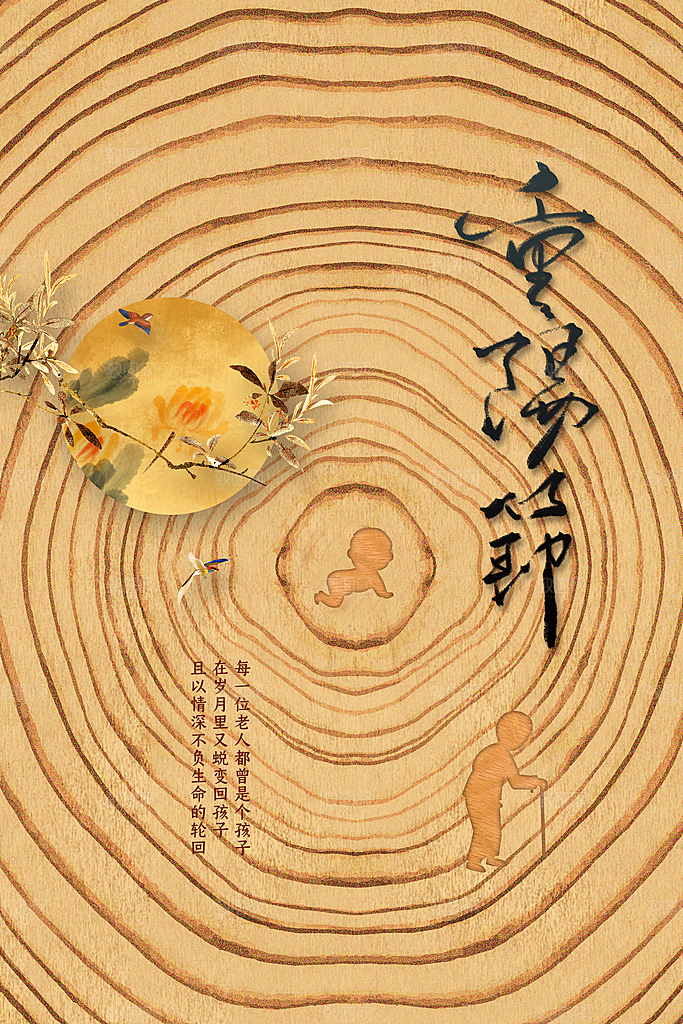 重陽節
每一位老人都曾是个孩子
在岁月里又蜕变回孩子
且以情深不负生命的轮回